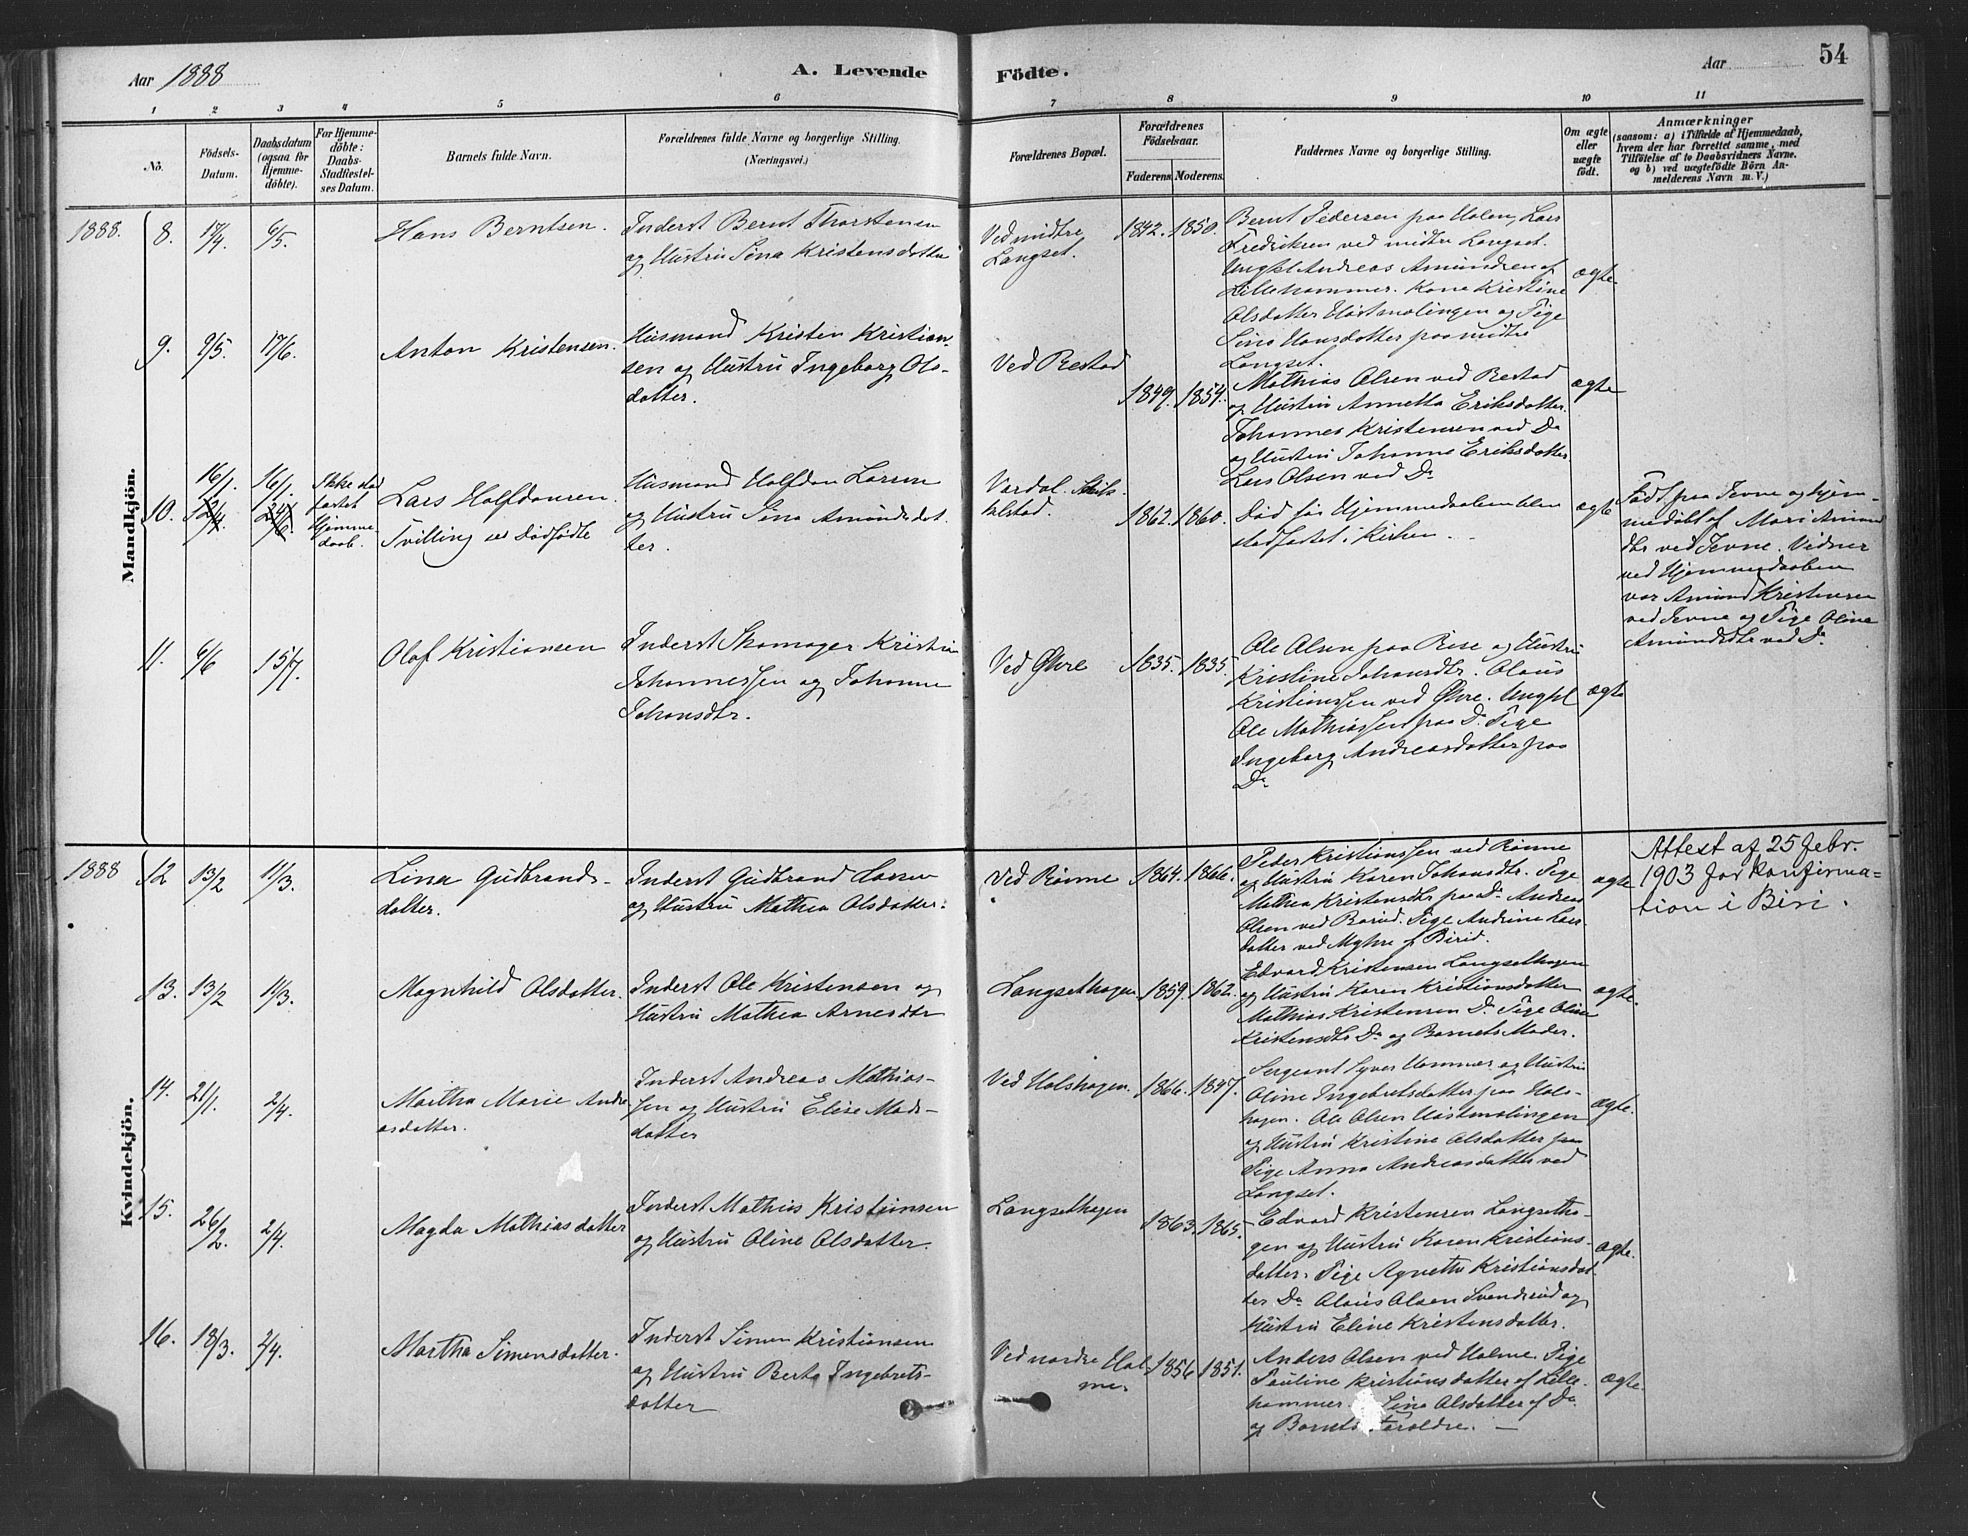 Aar 1888
A. Levende
Födte.
Aar
54
1 2 3 4 5 6 7 8 9 10 11
No.
Födsels-
Datum.
Daabsdatum
(ogsaa for
Hjemme-
döbte).
For Hjemme-
döbte:
Daabs-
Stadfæstel-
ses Datum.
Barnets fulde Navn.
Forældrenes fulde Navne og borgerlige Stilling.
(Næringsvei.)
Forældrenes Bopæl.
Forældrenes
Födselsaar.
Faderens.
Moderens.
Faddernes Navne og borgerlige Stilling.
Om ægte
eller
uægte
födt.
Anmærkninger
(saasom: a) i Tilfælde af Hjemmedaab,
hvem der har forrettet samme, med
Tilföielse af to Daabsvidners Navne,
og b) ved uægtefödte Börn An-
melderens Navn m. V.)
Mandkjön.
1888. 8. 17/4 6/5. Hans Berntsen.
Inderst Bernt Thorstensen
og Hustru Sina Kristensdatter
Ved midtre
Langset.
1842. 1850.
Bernt Pedersen paa Holen, Lars
Fredriksen ved midtre Langset.
Ungkl Andreas Amundsen af
Lillehammer. Kone Kristine
Olsdatter Høistmolingen og Pige
Sina Hansdatter paa midtre
Langset.
ægte.
9. 9/5. 17/6. Anton Kristensen.
Husmand Kristen Kristian-
sen og Hustru Ingeborg Ols-
datter.
Ved Bestad
1849. 1854.
Mathias Olsen ved Bestad
og Hustru Annetta Eriksdatter.
Johannes Kristensen ved Do
og Hustru Johanne Eriksdatter
Lars Olsen ved Do
ægte
10. 16/1. 16/1.
Ikke stad
fæstet
Hjemme
daab.
Lars Halfdansen.
Tvilling dødfødte
Husmand Halfdan Larsen
og Hustru Sina Amundsdat
ter.
Vardal.
1862. 1860.
Død før Hjemmedaaben blev
stadfæstet i Kirken.
ægte
Født paa Jevne og hjem-
medøbt af Mari Amund
dtr ved Jevne. Vidner
ved Hjemmedaaben
var Amund Kristensen
ved Jevne og Pige Oline
Amundsdtr ved Do
11. 6/6 15/7. Olaf Kristiansen
Inderst Skomager Kristian
Johannessen og Johanne
Johansdtr.
Ved Øvre
1835. 1835.
Ole Olsen paa Rise og Hustru
Kristine Johansdtr. Olaus
Kristianssen ved Øvre. Ungkl
Ole Mathiassen paa Do. Pige
Ingeborg Andreasdatter paa
Do
ægte
Kvindekjön.
1888 12 13/2 11/3. Lina Gudbrands-
datter.
Inderst Gudbrand Larsen
og Hustru Mathea Olsdatter.
Ved Rønne
1864. 1866.
Peder Kristianssen ved Rønne
og Hustru Karen Johansdtr. Pige
Mathea Kristensdtr paa Do. Andreas
Olsen ved Pige Andrine Lars
datter ved af Birid.
ægte
Attest af 25 febr.
1903 for konfirma-
tion i Biri.
13. 13/2 11/3. Magnhild Olsdatter.
Inderst Ole Kristensen og
Hustru Mathea Arnesdtr
Langsethagen
1859. 1862.
Edvard Kristensen Langsethagen
og Hustru Karen Kristiansdatter
Mathias Kristensen Do. Pige Oline
Kristensdtr Do og Barnets Moder.
ægte.
14. 21/1. 2/4. Martha Marie Andre
asdatter.
Inderst Andreas Mathias-
sen og Hustru Elise Mads-
datter
Ved Holshagen.
1866. 1847.
Sergeant Syver Hammer og Hustru
Oline Ingebretsdatter paa Hols-
hagen. Ole Olsen Høistmolingen
og Hustru Kristine Olsdatter paa
Pige Anna Andreasdatter ved
Langset.
ægte.
15. 26/2. 2/4. Magda Mathiasdatter
Inderst Mathias Kristiansen
og Hustru Oline Olsdatter.
Langsethagen
1863. 1865.
Edvard Kristensen Langsetha-
gen og Hustru Karen Kristians-
datter. Pige Agnethe Kristiansdat
ter Do Olaus Olsen Svendsrud og
Hustru Eline Kristensdatter.
ægte.
16. 18/3. 2/4. Martha Simensdatter.
Inderst Simen Kristiansen
og Hustru Berte Ingebrets-
datter
Ved nordre Hol
me.
1856 1851.
Anders Olsen ved Holme. Pige
Pauline Kristiansdatter af Lille-
hammer. Sina Olsdatter af Do
og Barnets Foreldre.
ægte.